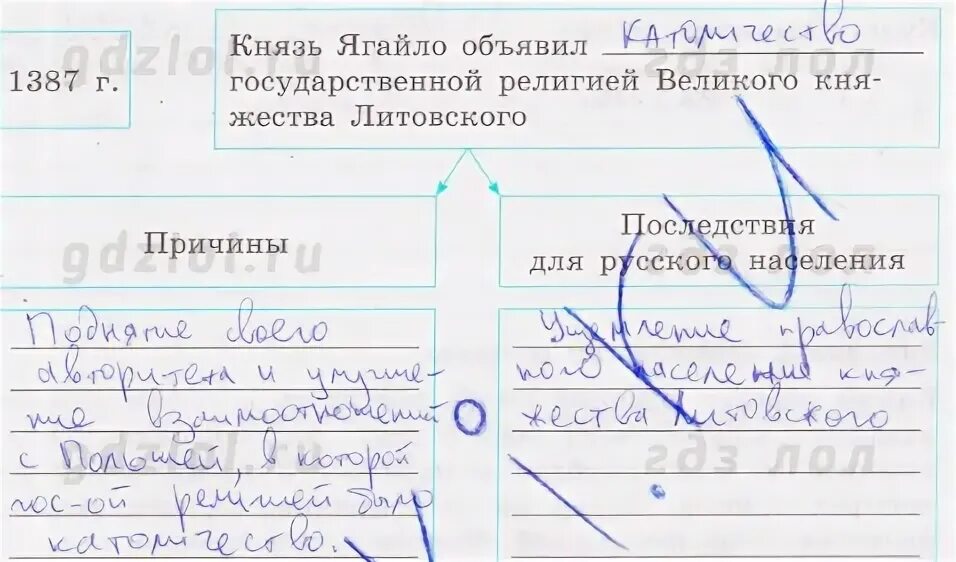 1387 г.
Князь Ягайло объявил католичество
государственной религией Великого кня-
жества Литовского
Причины
Последствия
для русского населения
Поднятие своего
авторитета и улучше-
ние взаимоотношений
с Польшей, в которой
гос-ой религией было
католичество.
Ущемление православ-
ного населения кня-
жества Литовского
gdzlol.ru
gdzlol.ru
gdzlol.ru